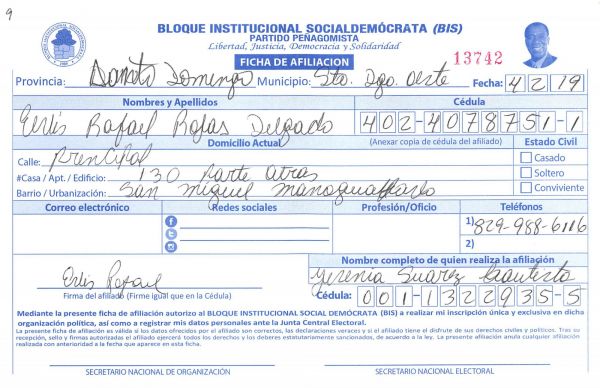 9
BLOQUE INSTITUCIONAL SOCIALDEMÓCRATA (BIS)
PARTIDO PEÑAGOMISTA
Libertad, Justicia, Democracia y Solidaridad
FICHA DE AFILIACION
13742
Provincia: Santo Domingo Municipio: Sto. Dgo. Oeste Fecha: 4 2 19
Nombres y Apellidos Cédula
Erlis Rafael Rojas Delgado 402-4078751-1
Domicilio Actual (Anexar copia de cédula del afiliado) Estado Civil
Calle: Principal Casado
#Casa / Apt. / Edificio: 130 Parte atras Soltero
Barrio / Urbanización: San Miguel Manoguayabo Conviviente
Correo electrónico Redes sociales Profesión/Oficio Teléfonos
1) 829-988-6116
2)
Nombre completo de quien realiza la afiliación
Erlis Rafael Yerenia Suarez Bautista
Firma del afiliado (Firme igual que en la Cédula) Cédula: 001-1322935-5
Mediante la presente ficha de afiliación autorizo al BLOQUE INSTITUCIONAL SOCIAL DEMÓCRATA (BIS) a realizar mi inscripción única y exclusiva en dicha
organización política, así como a registrar mis datos personales ante la Junta Central Electoral.
La presente ficha de afiliación es válida si los datos ofrecidos por el afiliado son correctos, las declaraciones veraces y si el afiliado tiene el disfrute de sus derechos civiles y políticos. Tras su
recepción, sello y firmas autorizadas el afiliado ejercerá todos los derechos y los deberes estatutariamente sancionados, de acuerdo a la ley. La presente afiliación anula cualquier afiliación
realizada con anterioridad a la fecha que aparece en esta ficha.
SECRETARIO NACIONAL DE ORGANIZACIÓN SECRETARIO NACIONAL ELECTORAL